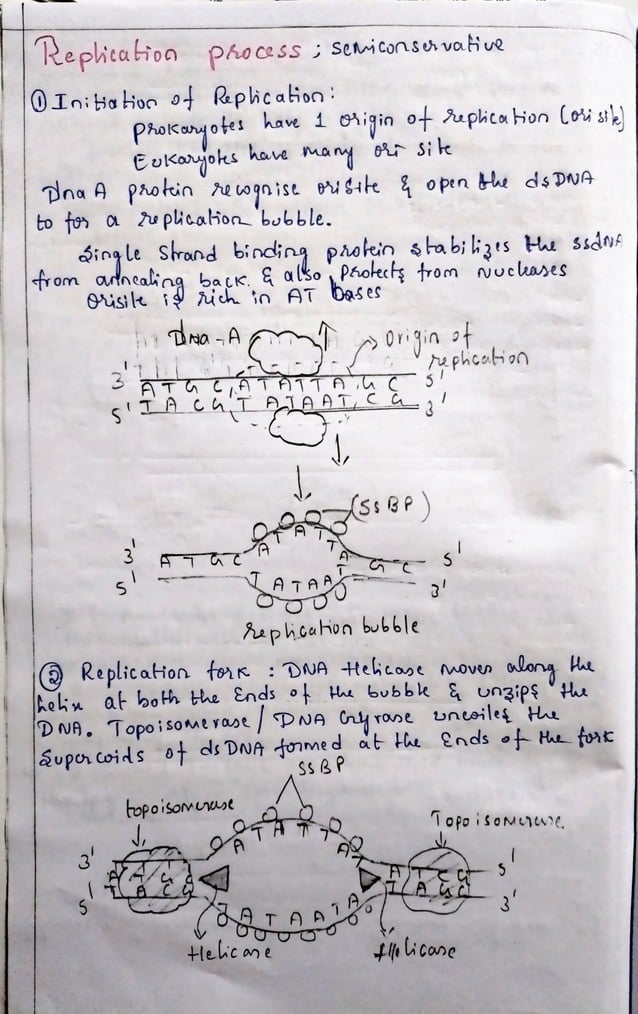 Replication process ; semiconservative
① Initiation of Replication:
Prokaryotes have 1 origin of replication (ori site)
Eukaryotes have many ori site
Dna A protein recognise orisite & open the dsDNA
to for a replication bubble.
Single strand binding protein stabilizes the ssdNA
from annealing back. & also protects from nucleases
orisite is rich in AT bases
Dna-A
Origin of
replication
3' A T G C A T A T T A G C 5'
5' T A C G T A T A A T C G 3'
(SSBP)
3' A T G C A T A T T A G C 5'
5' T A T A A T 3'
replication bubble
② Replication fork : DNA Helicase moves along the
helix at both the Ends of the bubble & unzips the
DNA. Topoisomerase / DNA Gyrase uncoiles the
Supercoids of dsDNA formed at the Ends of the fork
SSBP
topoisomerase
Topoisomerase
3' A T G C A T A T T A T A T C G 5'
5' T A C G A T A A T A T A G C 3'
Helicase
Helicase